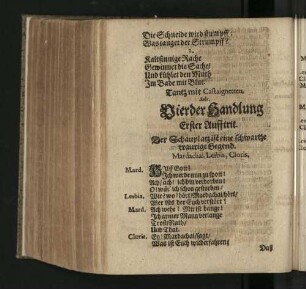 Die Schneide wird stumpff:
Was tauget der Strumpff?
2.
Kaltsinnige Rache
Gewinnet die Sache/
Und kühlet den Muth
Im Bade mit Blut.
Tantz mit Castaignetten.
Vierder Handlung
Erster Aufftrit.
Der Schauplatz ist eine schwartze
traurige Gegend.
Mardachai, Lesbia, Cloris,
Mard. Hilff Gott!
Ich werde
Ach/ ach! ich bin verdorben!
O weh! ich schon gestorben/
Lesbia. Wie? wo? hört Mardachai hört/
Wer hat der Euch versehrt?
Mard. Ach wehe! Mir ist bange!
Ich armer Mann verlange
Trost/Rath/
Und That.
Cloris. Ey/ Mardachai/ sagt/
Was ist Euch widerfahren?
Daß